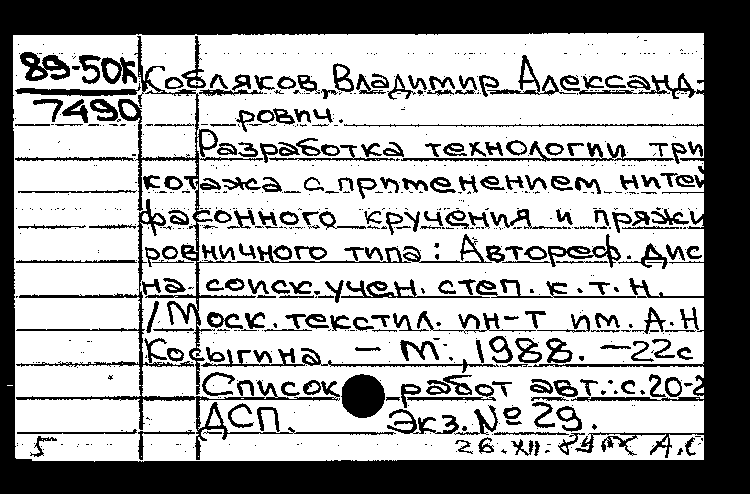 89-50К Кобляков, Владимир Александ-
7490 рович.
Разработка технологии три
котажа с применением нитей
фасонного кручения и пряжи
ровничного типа: Автореф. дис
на соиск. учен. степ. к.т.н.
/Моск. текстил. ин-т им. А.Н
Косыгина. – М., 1988. – 22с
Список работ авт.: с. 20-2
ДСП. Экз. № 29.
5 26.XII.89